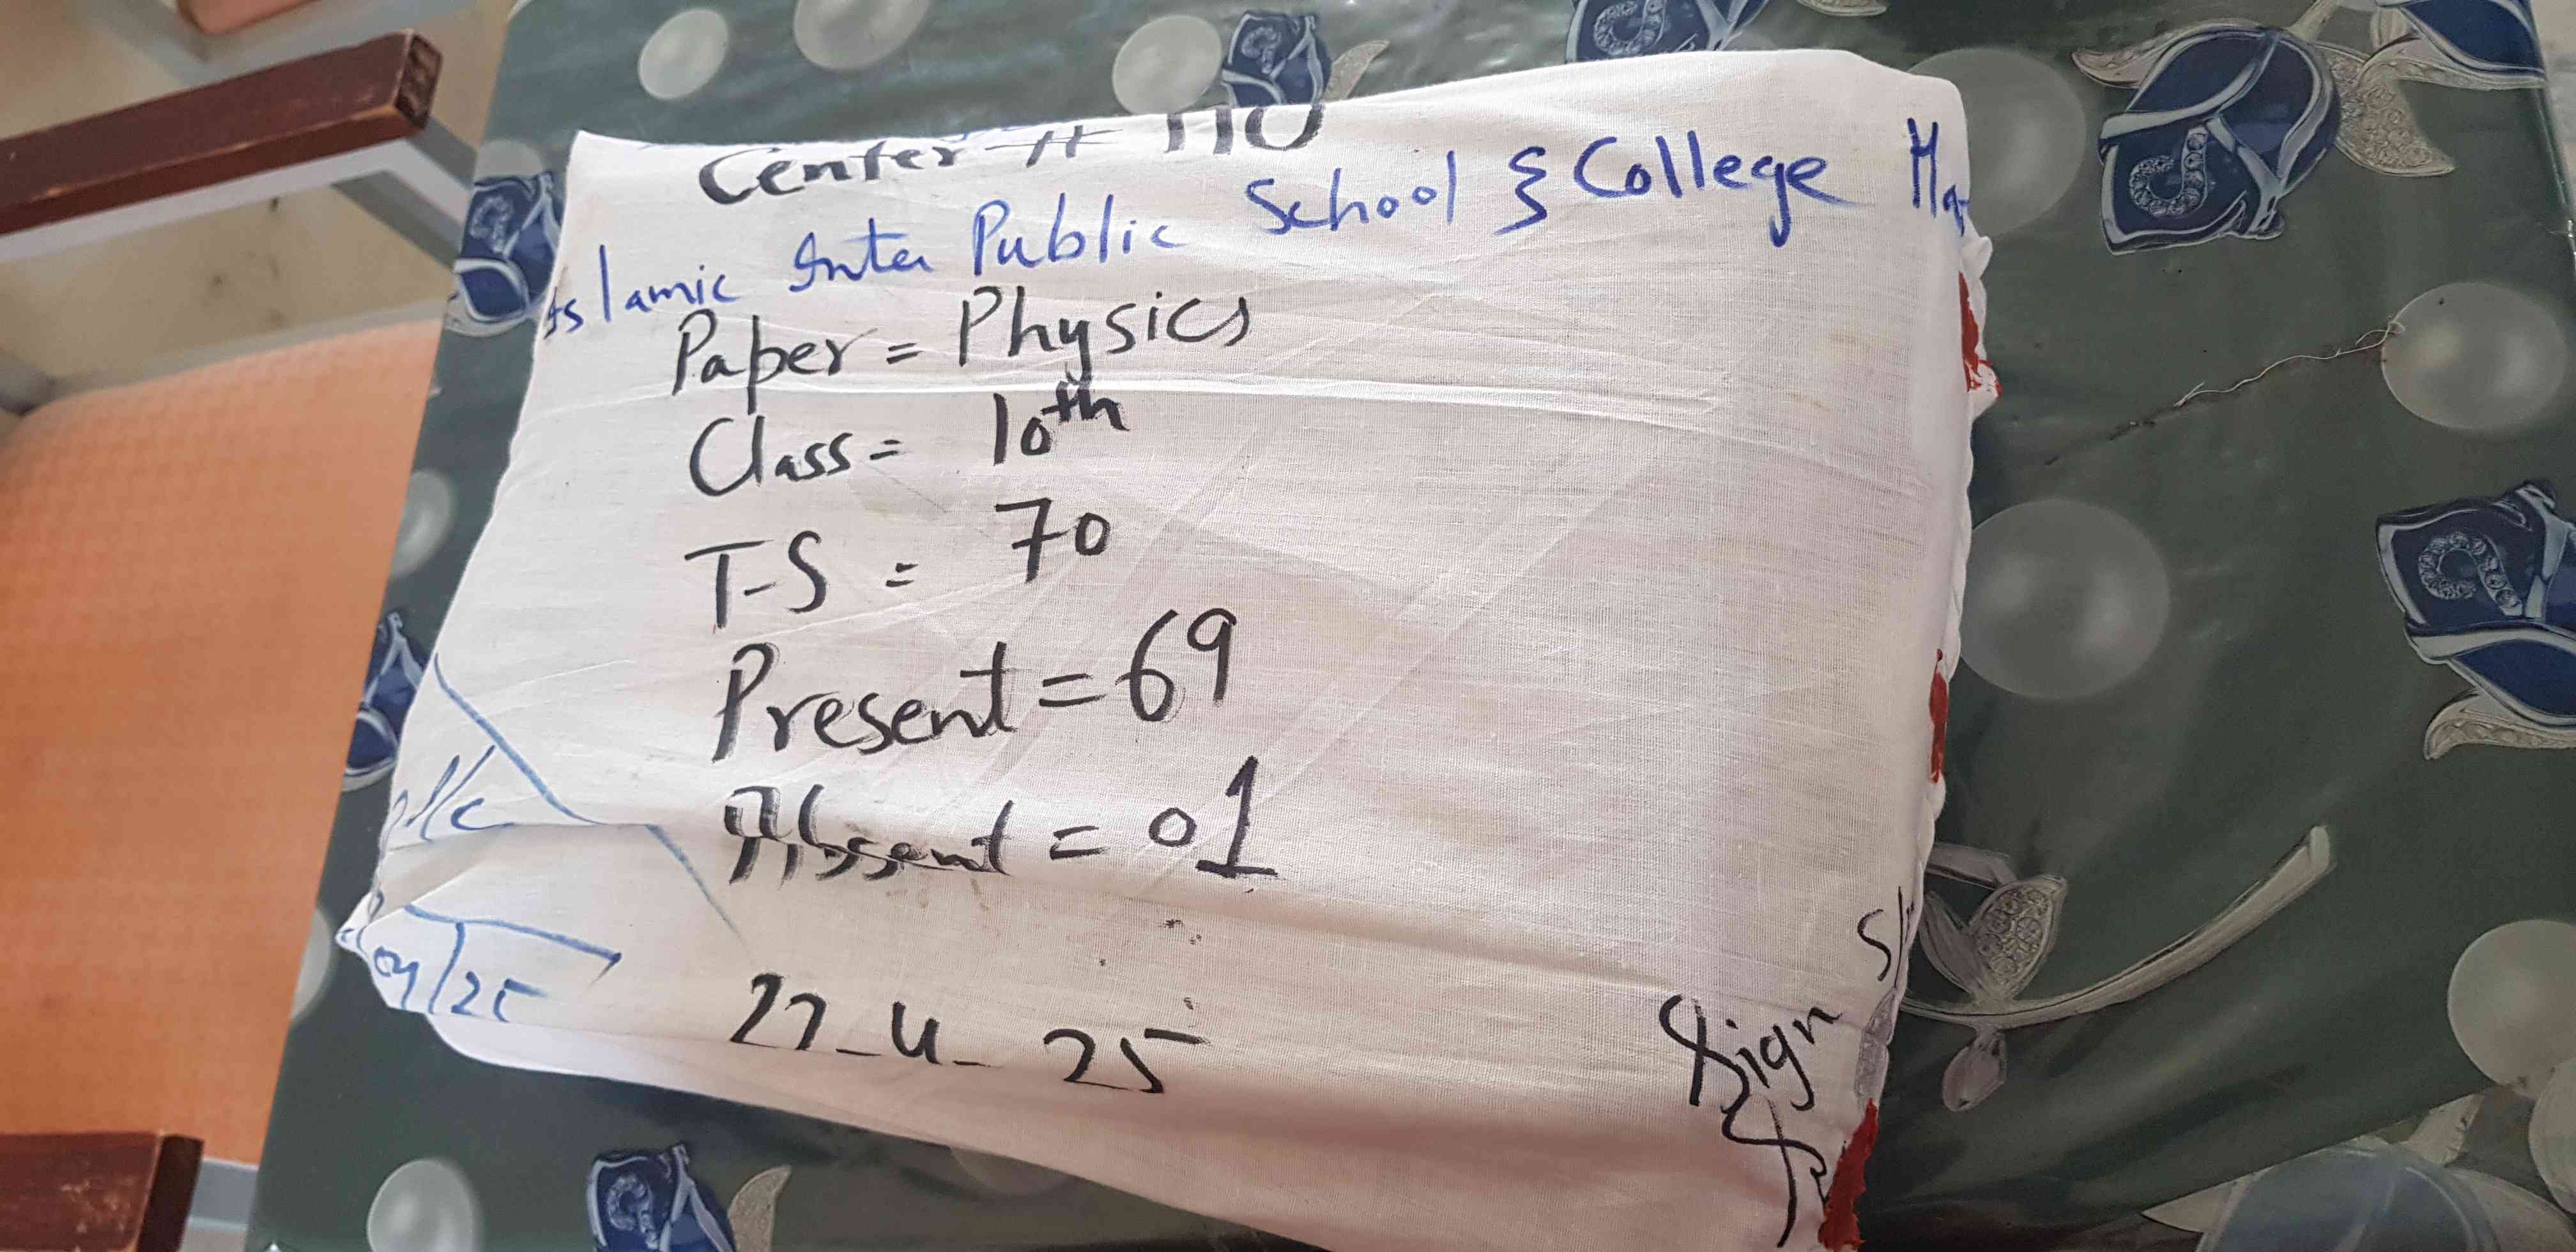 Center # 110
Islamic Inter Public School & College
Paper = Physics
Class = 10th
T-S = 70
Present = 69
Absent = 01
04/25
22-4-25
Sign